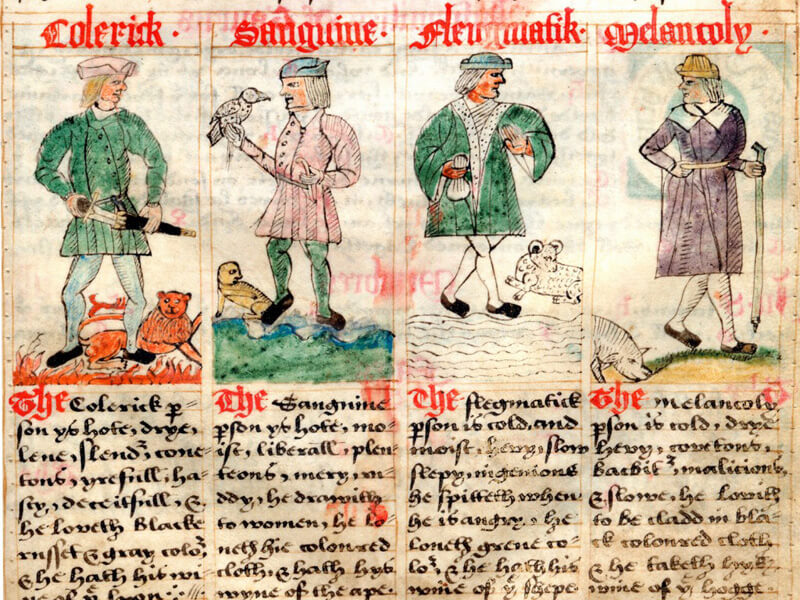 Colerick · Sanguine · Flengmatik · Melancoly ·
The Colerick p̲
son ys hote, drye,
lene, slend', cove=
tous, yrefull, ha=
sty, deceitfull, &
he loveth blacke
russet & gray colo'
& he hath his wi
ne of ye lyon :
The Sanguine
pson ys hote, mo=
ist, liberall, plen=
teous, mery, ru=
ddy, he drawith
to women, he lo=
veth hie coloured
cloth, & hath hys
wyne of the ape
The flegmatick
pson is cold, and
moist, hevy, slow
slepy, ingenious
he spitteth when
he is angry, he
loveth grene co=
lo', & he hath his
wine of ye shepe
The melancoly
pson is cold, drye
hevy, covetous,
backbit', malicious,
& slowe, he lovith
to be cladd in bla=
ck coloured cloth
& he taketh hys
wine of ye hogge